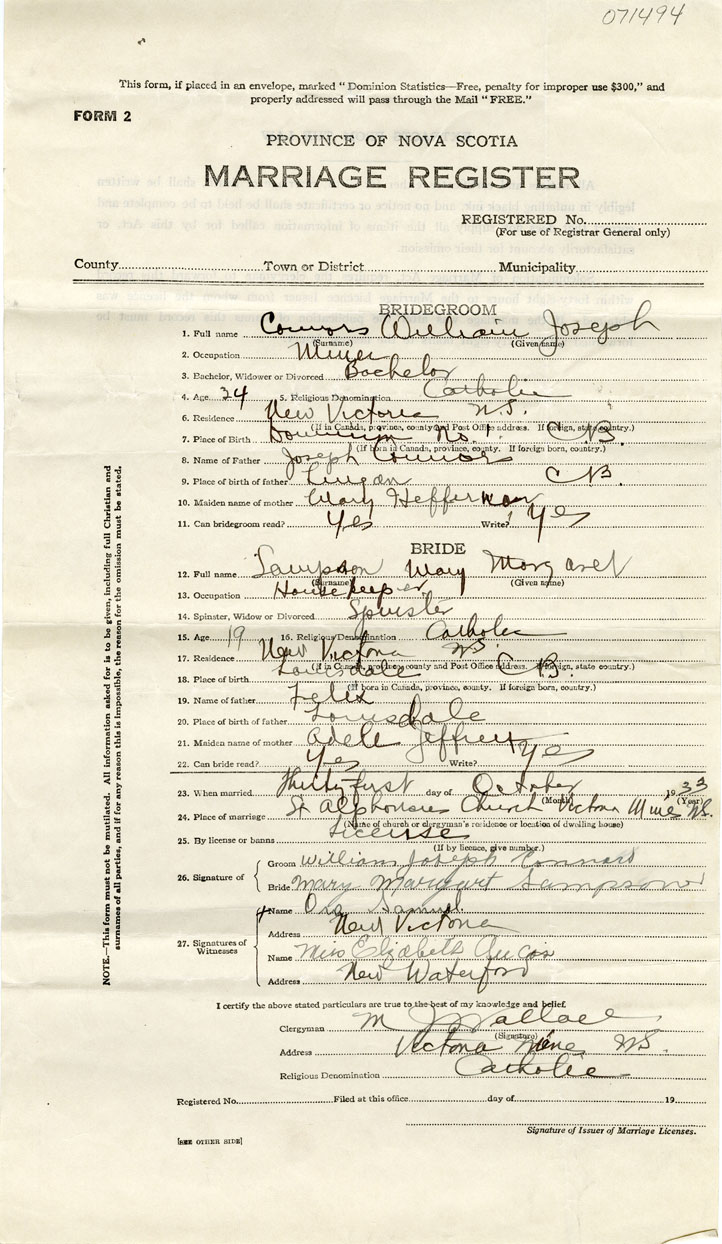 071494
This form, if placed in an envelope, marked “Dominion Statistics—Free, penalty for improper use $300,” and
properly addressed will pass through the Mail “FREE.”
FORM 2
PROVINCE OF NOVA SCOTIA
MARRIAGE REGISTER
REGISTERED No.
(For use of Registrar General only)
County Town or District Municipality
BRIDEGROOM
1. Full name Connors William Joseph
(Surname) (Given name)
2. Occupation Miner
3. Bachelor, Widower or Divorced Bachelor
4. Age 34 5. Religious Denomination Catholic
6. Residence New Victoria N.S.
(If in Canada, province, county and Post Office address. If foreign, state country.)
7. Place of Birth Dominion No. 1. C B.
(If born in Canada, province, county. If foreign born, country.)
8. Name of Father Joseph Connors
9. Place of birth of father Lingan C B.
10. Maiden name of mother Mary Heffernan
11. Can bridegroom read? Yes Write? Yes
BRIDE
12. Full name Sampson Mary Margaret
(Surname) (Given name)
13. Occupation Housekeeper
14. Spinster, Widow or Divorced Spinster
15. Age 19 16. Religious Denomination Catholic
17. Residence New Victoria N.S.
(If in Canada, province, county and Post Office address. If foreign, state country.)
18. Place of birth Louisdale C B.
(If born in Canada, province, county. If foreign born, country.)
19. Name of father Felix
20. Place of birth of father Louisdale
21. Maiden name of mother Adele Jeffrey
22. Can bride read? Yes Write? Yes
23. When married Thirty first day of October 1933
(Month) (Year)
24. Place of marriage St Alphonsus Church Victoria Mines N.S.
(Name of church or clergyman's residence or location of dwelling house)
25. By license or banns License
(If by licence, give number.)
26. Signature of Groom William Joseph Connors
Bride Mary Margaret Sampson
27. Signatures of Witnesses
Name Samuel
Address New Victoria
Name Miss Elizabeth Aucoin
Address New Waterford
I certify the above stated particulars are true to the best of my knowledge and belief.
Clergyman M J Wallace
(Signature)
Address Victoria Mines N.S.
Religious Denomination Catholic
Registered No. Filed at this office day of 19
Signature of Issuer of Marriage Licenses.
[SEE OTHER SIDE]
NOTE.—This form must not be mutilated. All information asked for is to be given, including full Christian and
surnames of all parties, and if for any reason this is impossible, the reason for the omission must be stated.